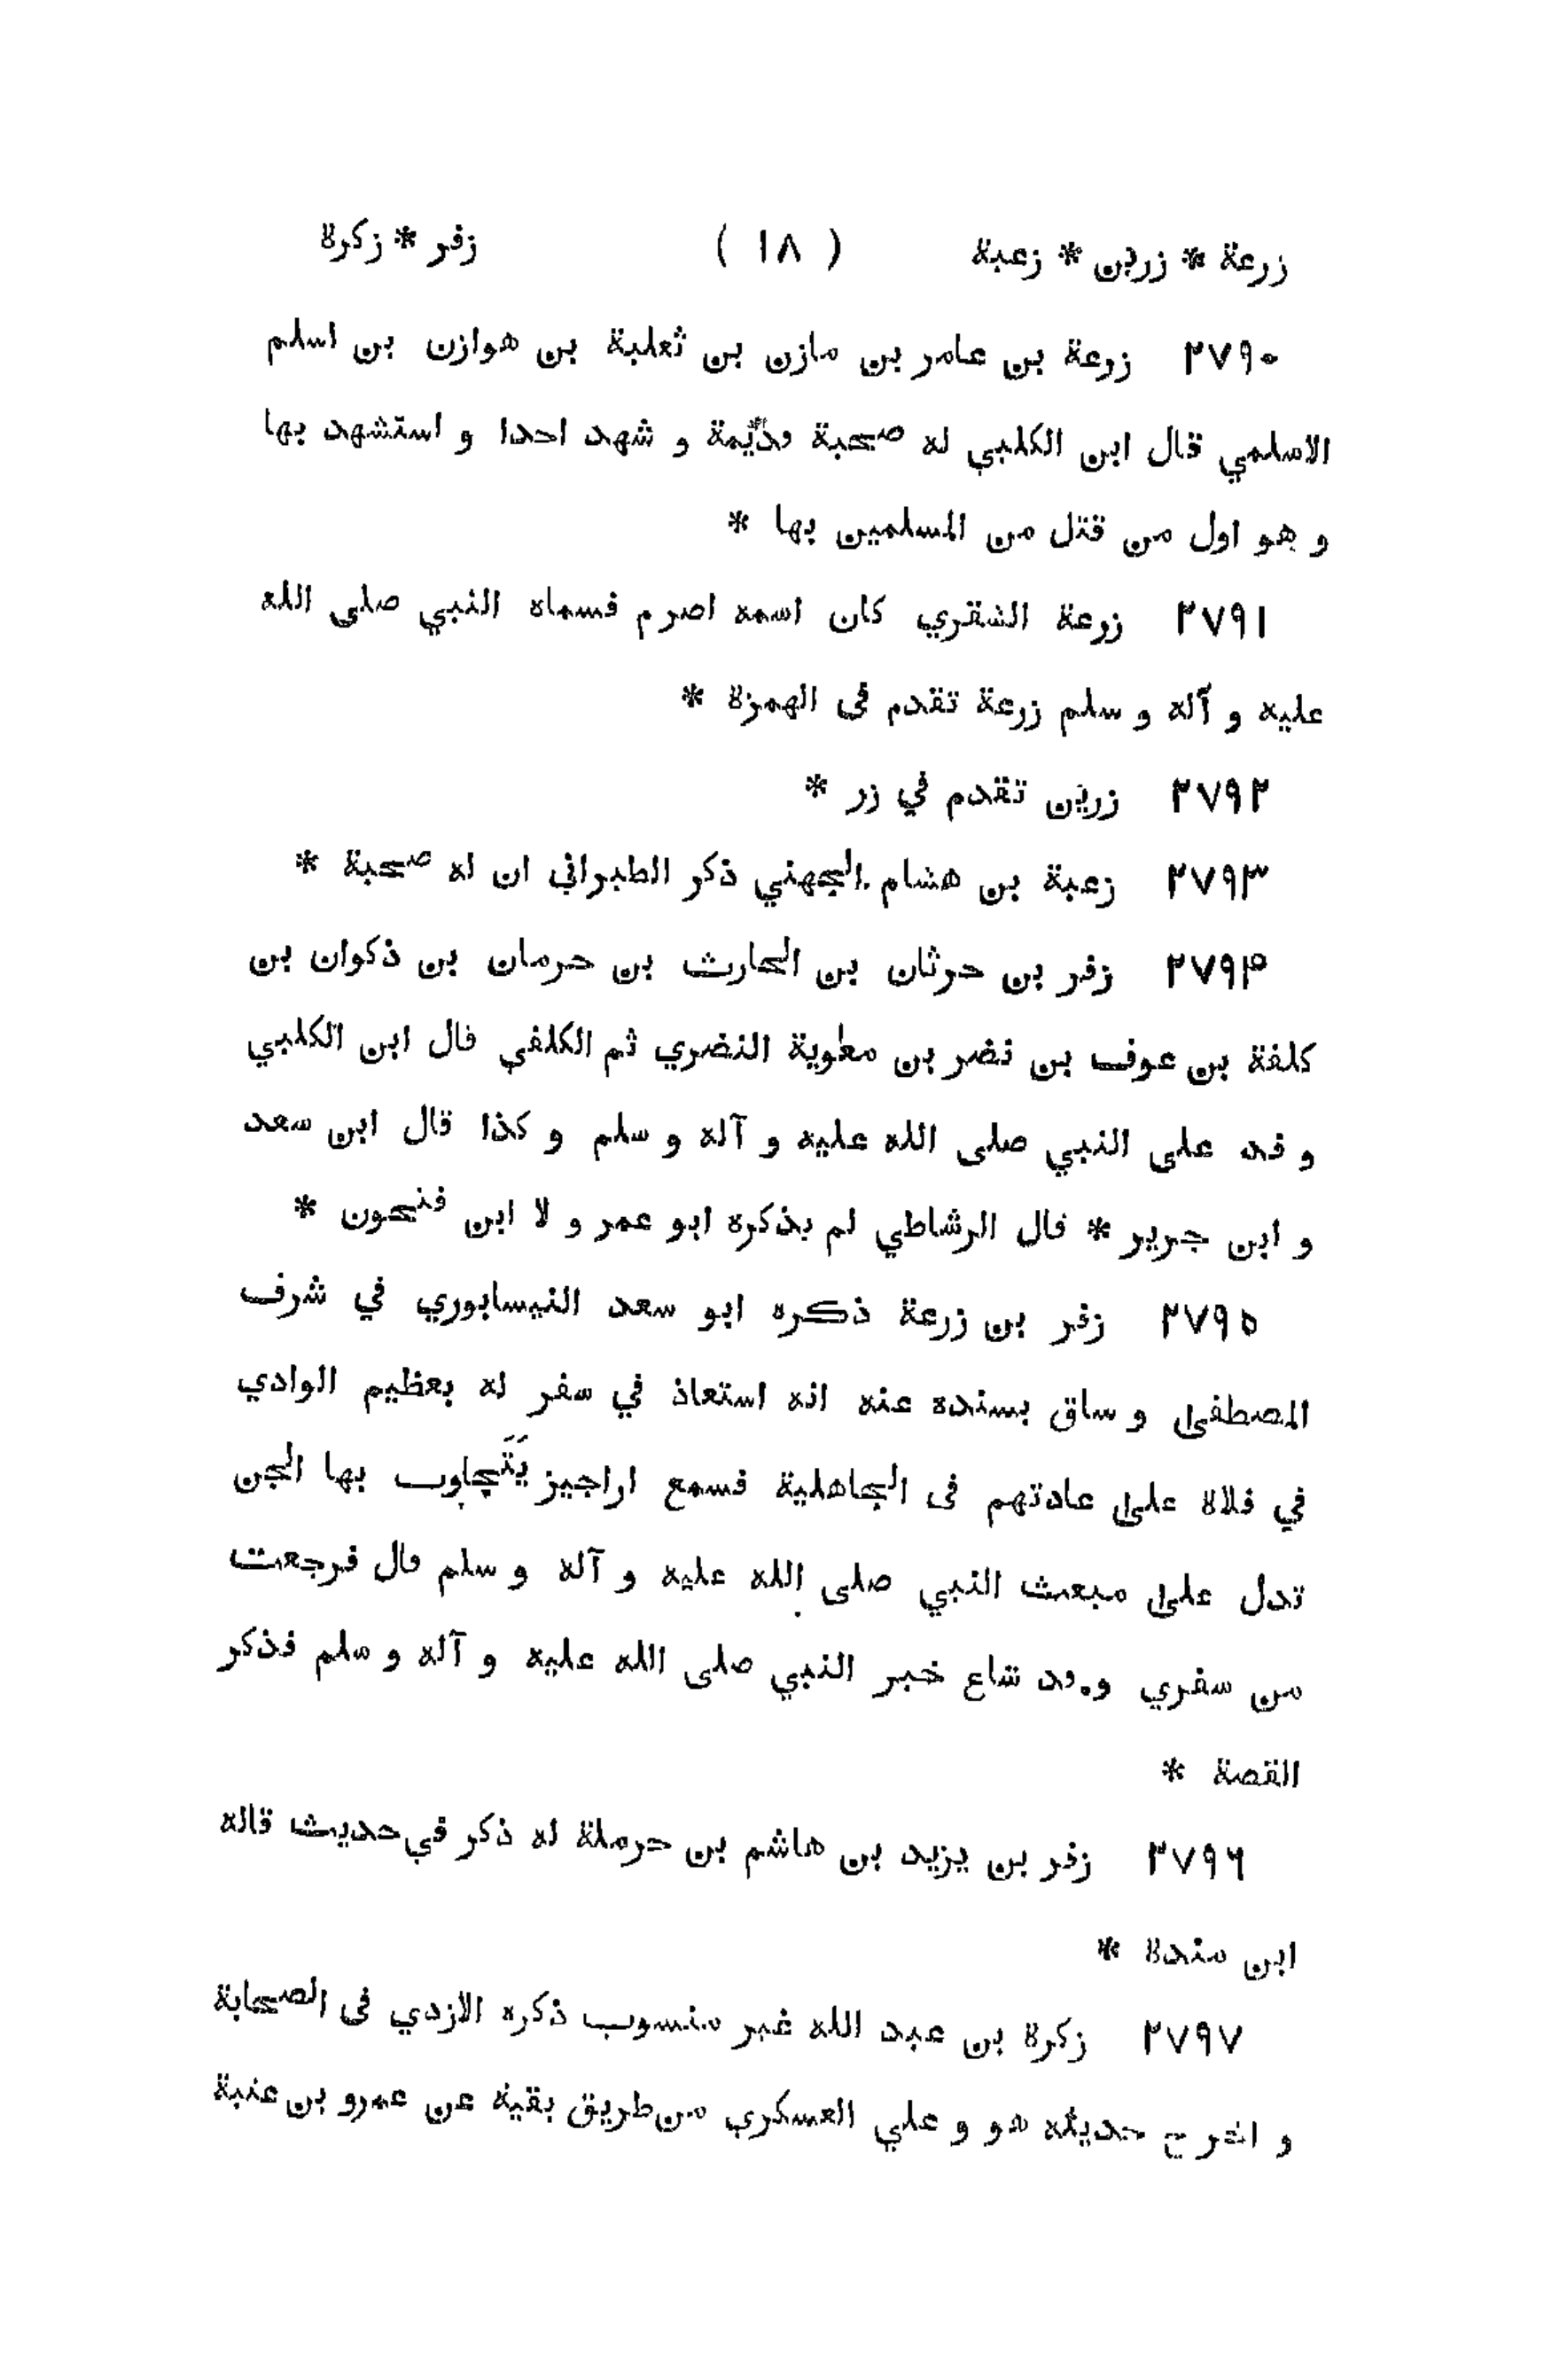 زرعة * زرين * زعبة ( ١٨ ) زفر * زكرة
٢٧٩٠ زرعة بن عامر بن مازن بن ثعلبة بن هوازن بن اسلم
الاسلمي قال ابن الكلبي له صحبة قديمة و شهد احدا و استشهد بها
و هو اول من قتل من المسلمين بها *
٢٧٩١ زرعة الشقري كان اسمه اصرم فسماه النبي صلى الله
عليه و آله و سلم زرعة تقدم فى الهمزة *
٢٧٩٢ زرين تقدم في زر *
٢٧٩٣ زعبة بن هشام الجهني ذكر الطبراني ان له صحبة *
٢٧٩۴ زفر بن حرثان بن الحارث بن حرمان بن ذكوان بن
كلفة بن عوف بن نضر بن معٰوية النضري ثم الكلفي قال ابن الكلبي
و فد على النبي صلى الله عليه و آله و سلم و كذا قال ابن سعد
و ابن جرير * قال الرشاطي لم يذكره ابو عمر و لا ابن فتحون *
٢٧٩٥ زفر بن زرعة ذكره ابو سعد النيسابوري في شرف
المصطفىٰ و ساق بسنده عنه انه استعاذ في سفر له بعظيم الوادي
في فلاة علىٰ عادتهم فى الجاهلية فسمع اراجيز يَتَجاوب بها الجن
تدل علىٰ مبعث النبي صلى الله عليه و آله و سلم قال فرجعت
من سفري و قد شاع خبر النبي صلى الله عليه و آله و سلم فذكر
القصة *
٢٧٩٦ زفر بن يزيد بن هاشم بن حرملة له ذكر في حديث قاله
ابن مندة *
٢٧٩٧ زكرة بن عبد الله غير منسوب ذكره الازدي فى الصحابة
و اخرج حديثه هو و علي العسكري من طريق بقية عن عمرو بن عنبة